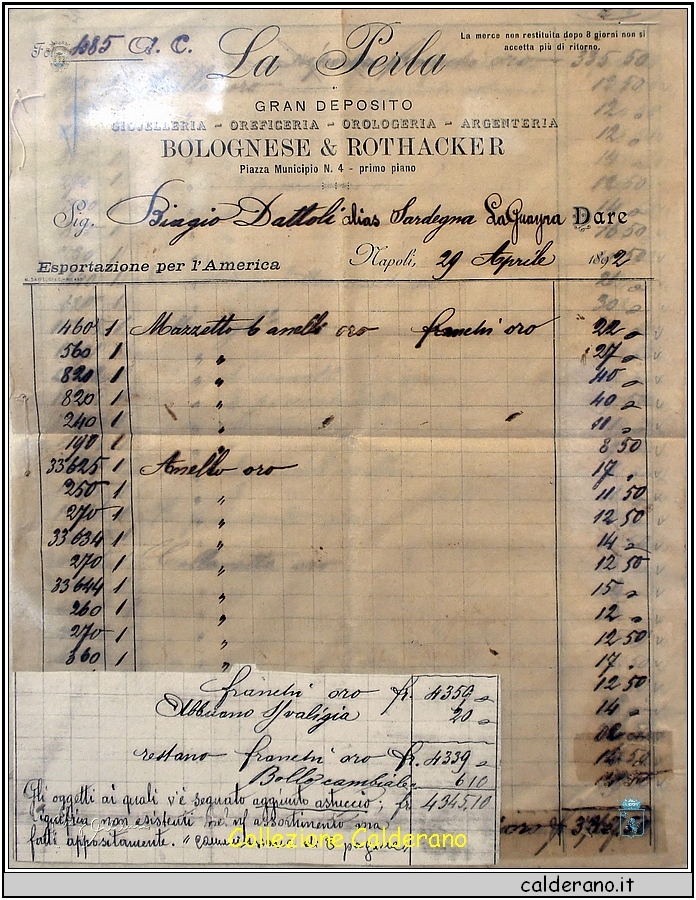 Fo 485 A. C.
La Perla
La merce non restituita dopo 8 giorni non si
accetta più di ritorno.
GRAN DEPOSITO
GIOJELLERIA - OREFICERIA - OROLOGERIA - ARGENTERIA
BOLOGNESE & ROTHACKER
Piazza Municipio N. 4 - primo piano
Sig. Biagio Dattoli alias Sardegna LaGuayra Dare
Esportazione per l'America Napoli, 29 Aprile 1892
460 1 Mazzetto 6 anelli oro franchi oro 22 "
560 1 " " 27 "
820 1 " 40 "
820 1 " 40 "
240 1 " 11 "
190 1 " 8 50
33625 1 Anello oro 17 "
250 1 " 11 50
270 1 " 12 50
33634 1 " 14 "
270 1 " 12 50
33644 1 " 15 "
260 1 " 12 "
270 1 " 12 50
360 1 " 17 "
12 50
14 "
franchi oro fr. 4359 "
Abbuono valigia 20 "
restano franchi oro fr. 4339 "
Bollo cambiale 6 10
fr 4345,10
Gli oggetti ai quali v'è segnato aggiunto astuccio,
non esistenti nell assortimento ma
fatti appositamente.
Collezione Calderano
calderano.it